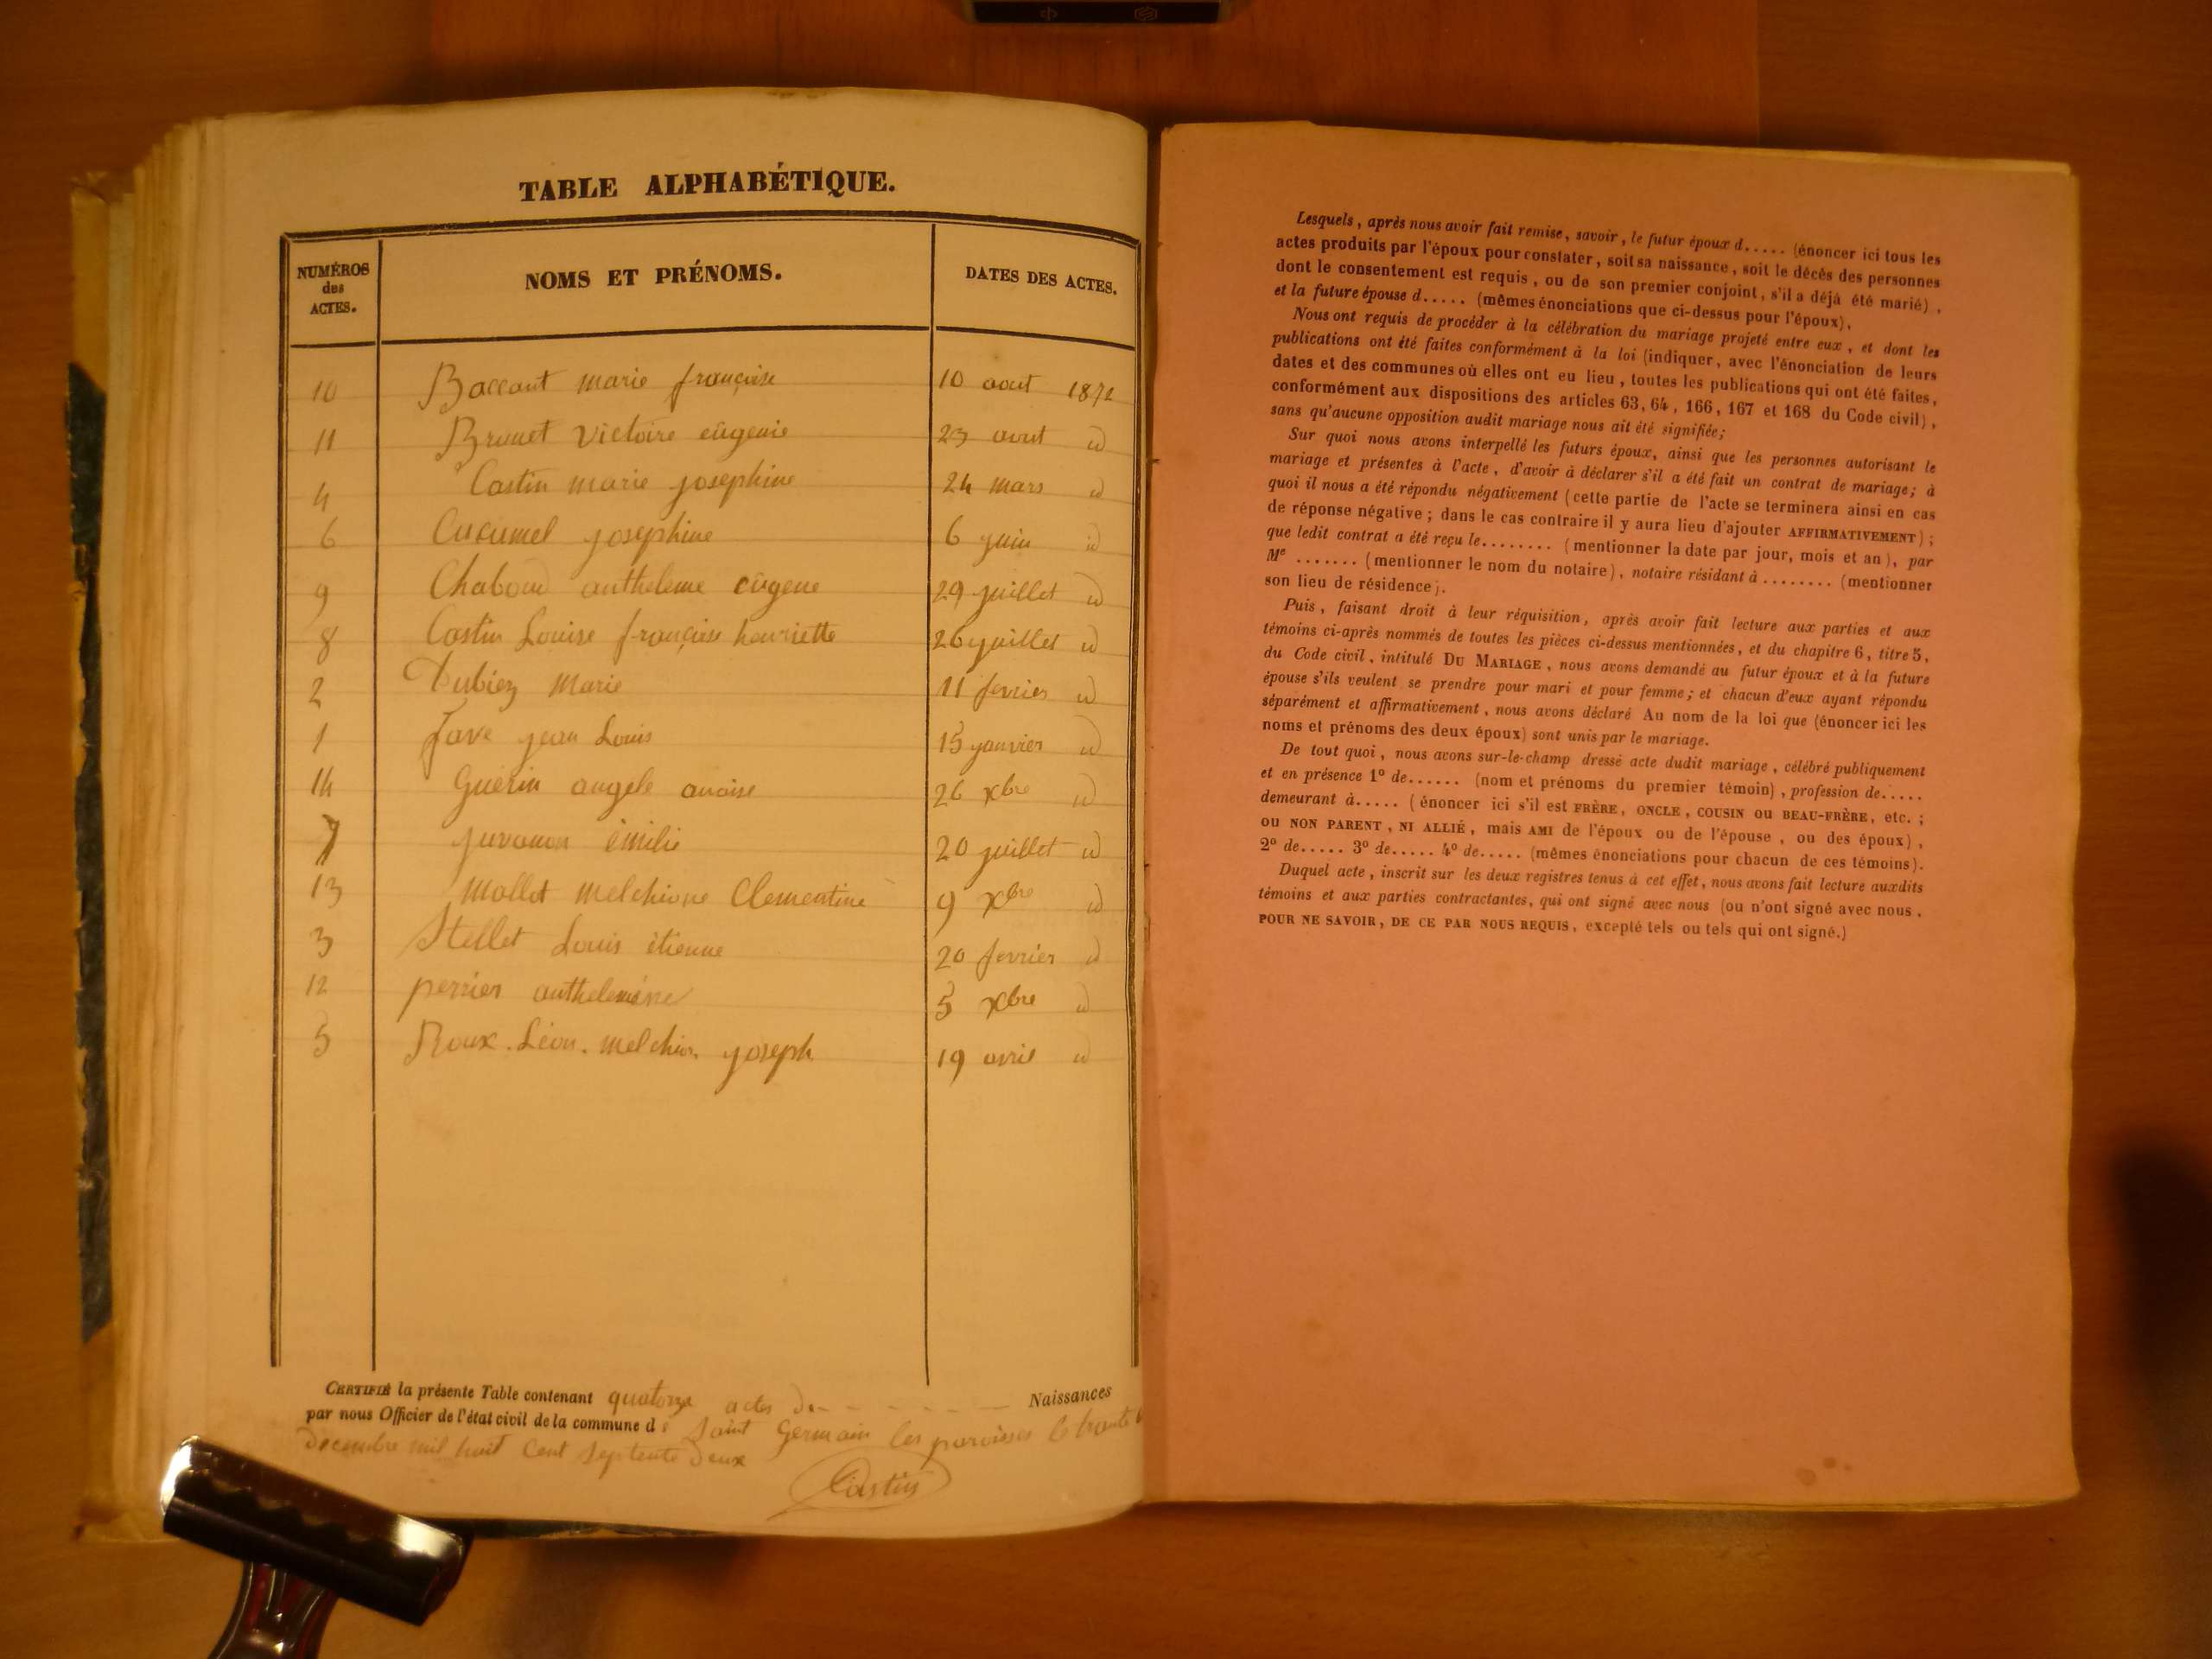 TABLE ALPHABÉTIQUE.
NUMÉROS des ACTES. NOMS ET PRÉNOMS. DATES DES ACTES.
10 Baccant marie françoise 10 aout 1872
11 Brunet victoire eûgenie 23 aout id
4 Castin marie josephine 24 mars id
6 Cucumel josephine 6 juin id
9 Chaboud antheleme eûgene 29 juillet id
8 Castin Louise françoise henriette 26 juillet id
2 Dubiez Marie 11 fevrier id
1 Fave jean Louis 15 janvier id
14 Guerin angele anaise 26 xbre id
7 juvanon émilie 20 juillet id
13 Mollot melchione Clementine 9 xbre id
3 Stellet Louis étienne 20 fevrier id
12 perrier 5 xbre id
5 Roux Léon. melchior joseph 19 avril id
CERTIFIÉ la présente Table contenant quatorze actes de Naissances
par nous Officier de l'état civil de la commune de Saint Germain les paroisses le trente
Decembre mil huit cent septente Deux
Castin
Lesquels, après nous avoir fait remise, savoir, le futur époux d..... (énoncer ici tous les
actes produits par l'époux pour constater, soit sa naissance, soit le décès des personnes
dont le consentement est requis, ou de son premier conjoint, s'il a déjà été marié),
et la future épouse d..... (mêmes énonciations que ci-dessus pour l'époux),
Nous ont requis de procéder à la célébration du mariage projeté entre eux, et dont les
publications ont été faites conformément à la loi (indiquer, avec l'énonciation de leurs
dates et des communes où elles ont eu lieu, toutes les publications qui ont été faites,
conformément aux dispositions des articles 63, 64, 166, 167 et 168 du Code civil),
sans qu'aucune opposition audit mariage nous ait été signifiée;
Sur quoi nous avons interpellé les futurs époux, ainsi que les personnes autorisant le
mariage et présentes à l'acte, d'avoir à déclarer s'il a été fait un contrat de mariage; à
quoi il nous a été répondu négativement (cette partie de l'acte se terminera ainsi en cas
de réponse négative; dans le cas contraire il y aura lieu d'ajouter AFFIRMATIVEMENT);
que ledit contrat a été reçu le........ (mentionner la date par jour, mois et an), par
Me ....... (mentionner le nom du notaire), notaire résidant à ........ (mentionner
son lieu de résidence).
Puis, faisant droit à leur réquisition, après avoir fait lecture aux parties et aux
témoins ci-après nommés de toutes les pièces ci-dessus mentionnées, et du chapitre 6, titre 5,
du Code civil, intitulé DU MARIAGE, nous avons demandé au futur époux et à la future
épouse s'ils veulent se prendre pour mari et pour femme; et chacun d'eux ayant répondu
séparément et affirmativement, nous avons déclaré Au nom de la loi que (énoncer ici les
noms et prénoms des deux époux) sont unis par le mariage.
De tout quoi, nous avons sur-le-champ dressé acte dudit mariage, célébré publiquement
et en présence 1º de...... (nom et prénoms du premier témoin), profession de.....
demeurant à..... (énoncer ici s'il est FRÈRE, ONCLE, COUSIN OU BEAU-FRÈRE, etc.;
OU NON PARENT, NI ALLIÉ, mais AMI de l'époux ou de l'épouse, ou des époux),
2º de..... 3º de..... 4º de..... (mêmes énonciations pour chacun de ces témoins).
Duquel acte, inscrit sur les deux registres tenus à cet effet, nous avons fait lecture auxdits
témoins et aux parties contractantes, qui ont signé avec nous (ou n'ont signé avec nous,
POUR NE SAVOIR, DE CE PAR NOUS REQUIS, excepté tels ou tels qui ont signé.)